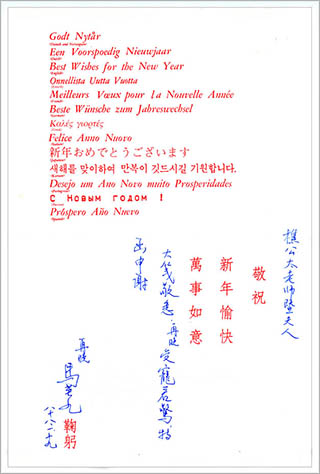 Godt Nytår
Een Voorspoedig Nieuwjaar
Best Wishes for the New Year
Onnellista Uutta Vuotta
Meilleurs Vœux pour la Nouvelle Année
Beste Wünsche zum Jahreswechsel
Καλές γιορτές
Felice Anno Nuovo
新年おめでとうございます
새해를 맞이하여 만복이 깃드시길 기원합니다.
Desejo um Ano Novo muito Prosperidades
С Новым годом !
Próspero Año Nuevo
樵公太老師暨夫人
敬祝
新年愉快
萬事如意
大箋敬悉,再晚受寵若驚,特
函申謝
再晚
馬英九
鞠躬